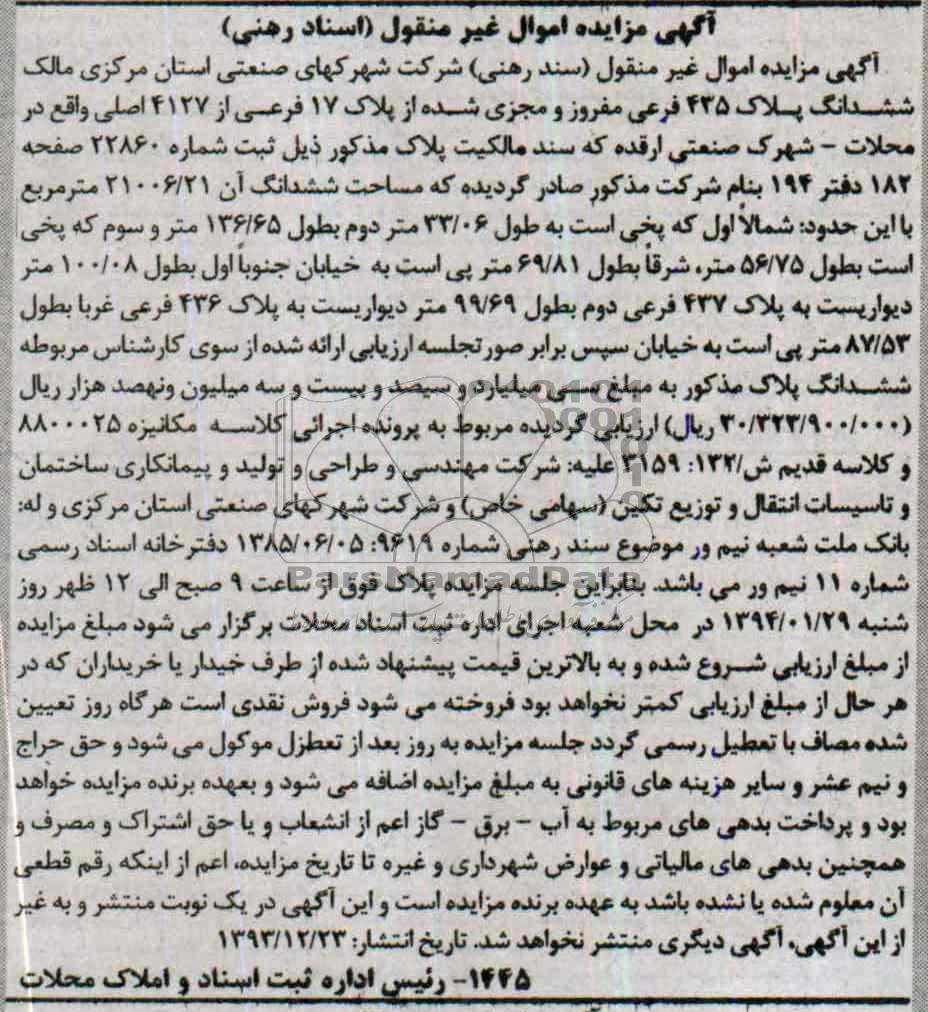 آگهی مزایده اموال غیر منقول (اسناد رهنی)
آگهی مزایده اموال غیر منقول (سند رهنی) شرکت شهرکهای صنعتی استان مرکزی مالک
ششدانگ پلاک ۴۳۵ فرعی مفروز و مجزی شده از پلاک ۱۷ فرعی از ۴۱۲۷ اصلی واقع در
محلات - شهرک صنعتی ارقده که سند مالکیت پلاک مذکور ذیل ثبت شماره ۲۲۸۶۰ صفحه
۱۸۲ دفتر ۱۹۴ بنام شرکت مذکور صادر گردیده که مساحت ششدانگ آن ۲۱۰۰۶/۲۱ مترمربع
با این حدود: شمالاً اول که پخی است به طول ۳۳/۰۶ متر دوم بطول ۱۳۶/۶۵ متر و سوم که پخی
است بطول ۵۶/۷۵ متر، شرقاً بطول ۶۹/۸۱ متر پی است به خیابان جنوباً اول بطول ۱۰۰/۰۸ متر
دیواریست به پلاک ۴۳۷ فرعی دوم بطول ۹۹/۶۹ متر دیواریست به پلاک ۴۳۶ فرعی غربا بطول
۸۷/۵۳ متر پی است به خیابان سپس برابر صورتجلسه ارزیابی ارائه شده از سوی کارشناس مربوطه
ششدانگ پلاک مذکور به مبلغ سی میلیارد و سیصد و بیست و سه میلیون ونهصد هزار ریال
(۳۰/۳۲۳/۹۰۰/۰۰۰ ریال) ارزیابی گردیده مربوط به پرونده اجرائی کلاسه مکانیزه ۸۸۰۰۰۲۵
و کلاسه قدیم ش/۱۳۲: ۳۱۵۹ علیه: شرکت مهندسی و طراحی و تولید و پیمانکاری ساختمان
و تاسیسات انتقال و توزیع تکین (سهامی خاص) و شرکت شهرکهای صنعتی استان مرکزی و له:
بانک ملت شعبه نیم ور موضوع سند رهنی شماره ۹۶۱۹: ۱۳۸۵/۰۶/۰۵ دفترخانه اسناد رسمی
شماره ۱۱ نیم ور می باشد. بنابراین جلسه مزایده پلاک فوق از ساعت ۹ صبح الی ۱۲ ظهر روز
شنبه ۱۳۹۴/۰۱/۲۹ در محل شعبه اجرای اداره ثبت اسناد محلات برگزار می شود مبلغ مزایده
از مبلغ ارزیابی شروع شده و به بالاترین قیمت پیشنهاد شده از طرف خیدار یا خریداران که در
هر حال از مبلغ ارزیابی کمتر نخواهد بود فروخته می شود فروش نقدی است هر گاه روز تعیین
شده مصاف با تعطیل رسمی گردد جلسه مزایده به روز بعد از تعطزل موکول می شود و حق حراج
و نیم عشر و سایر هزینه های قانونی به مبلغ مزایده اضافه می شود و بعهده برنده مزایده خواهد
بود و پرداخت بدهی های مربوط به آب - برق - گاز اعم از انشعاب و یا حق اشتراک و مصرف و
همچنین بدهی های مالیاتی و عوارض شهرداری و غیره تا تاریخ مزایده، اعم از اینکه رقم قطعی
آن معلوم شده یا نشده باشد به عهده برنده مزایده است و این آگهی در یک نوبت منتشر و به غیر
از این آگهی، آگهی دیگری منتشر نخواهد شد. تاریخ انتشار: ۱۳۹۳/۱۲/۲۳
۱۴۴۵- رئیس اداره ثبت اسناد و املاک محلات
ParsNamadData